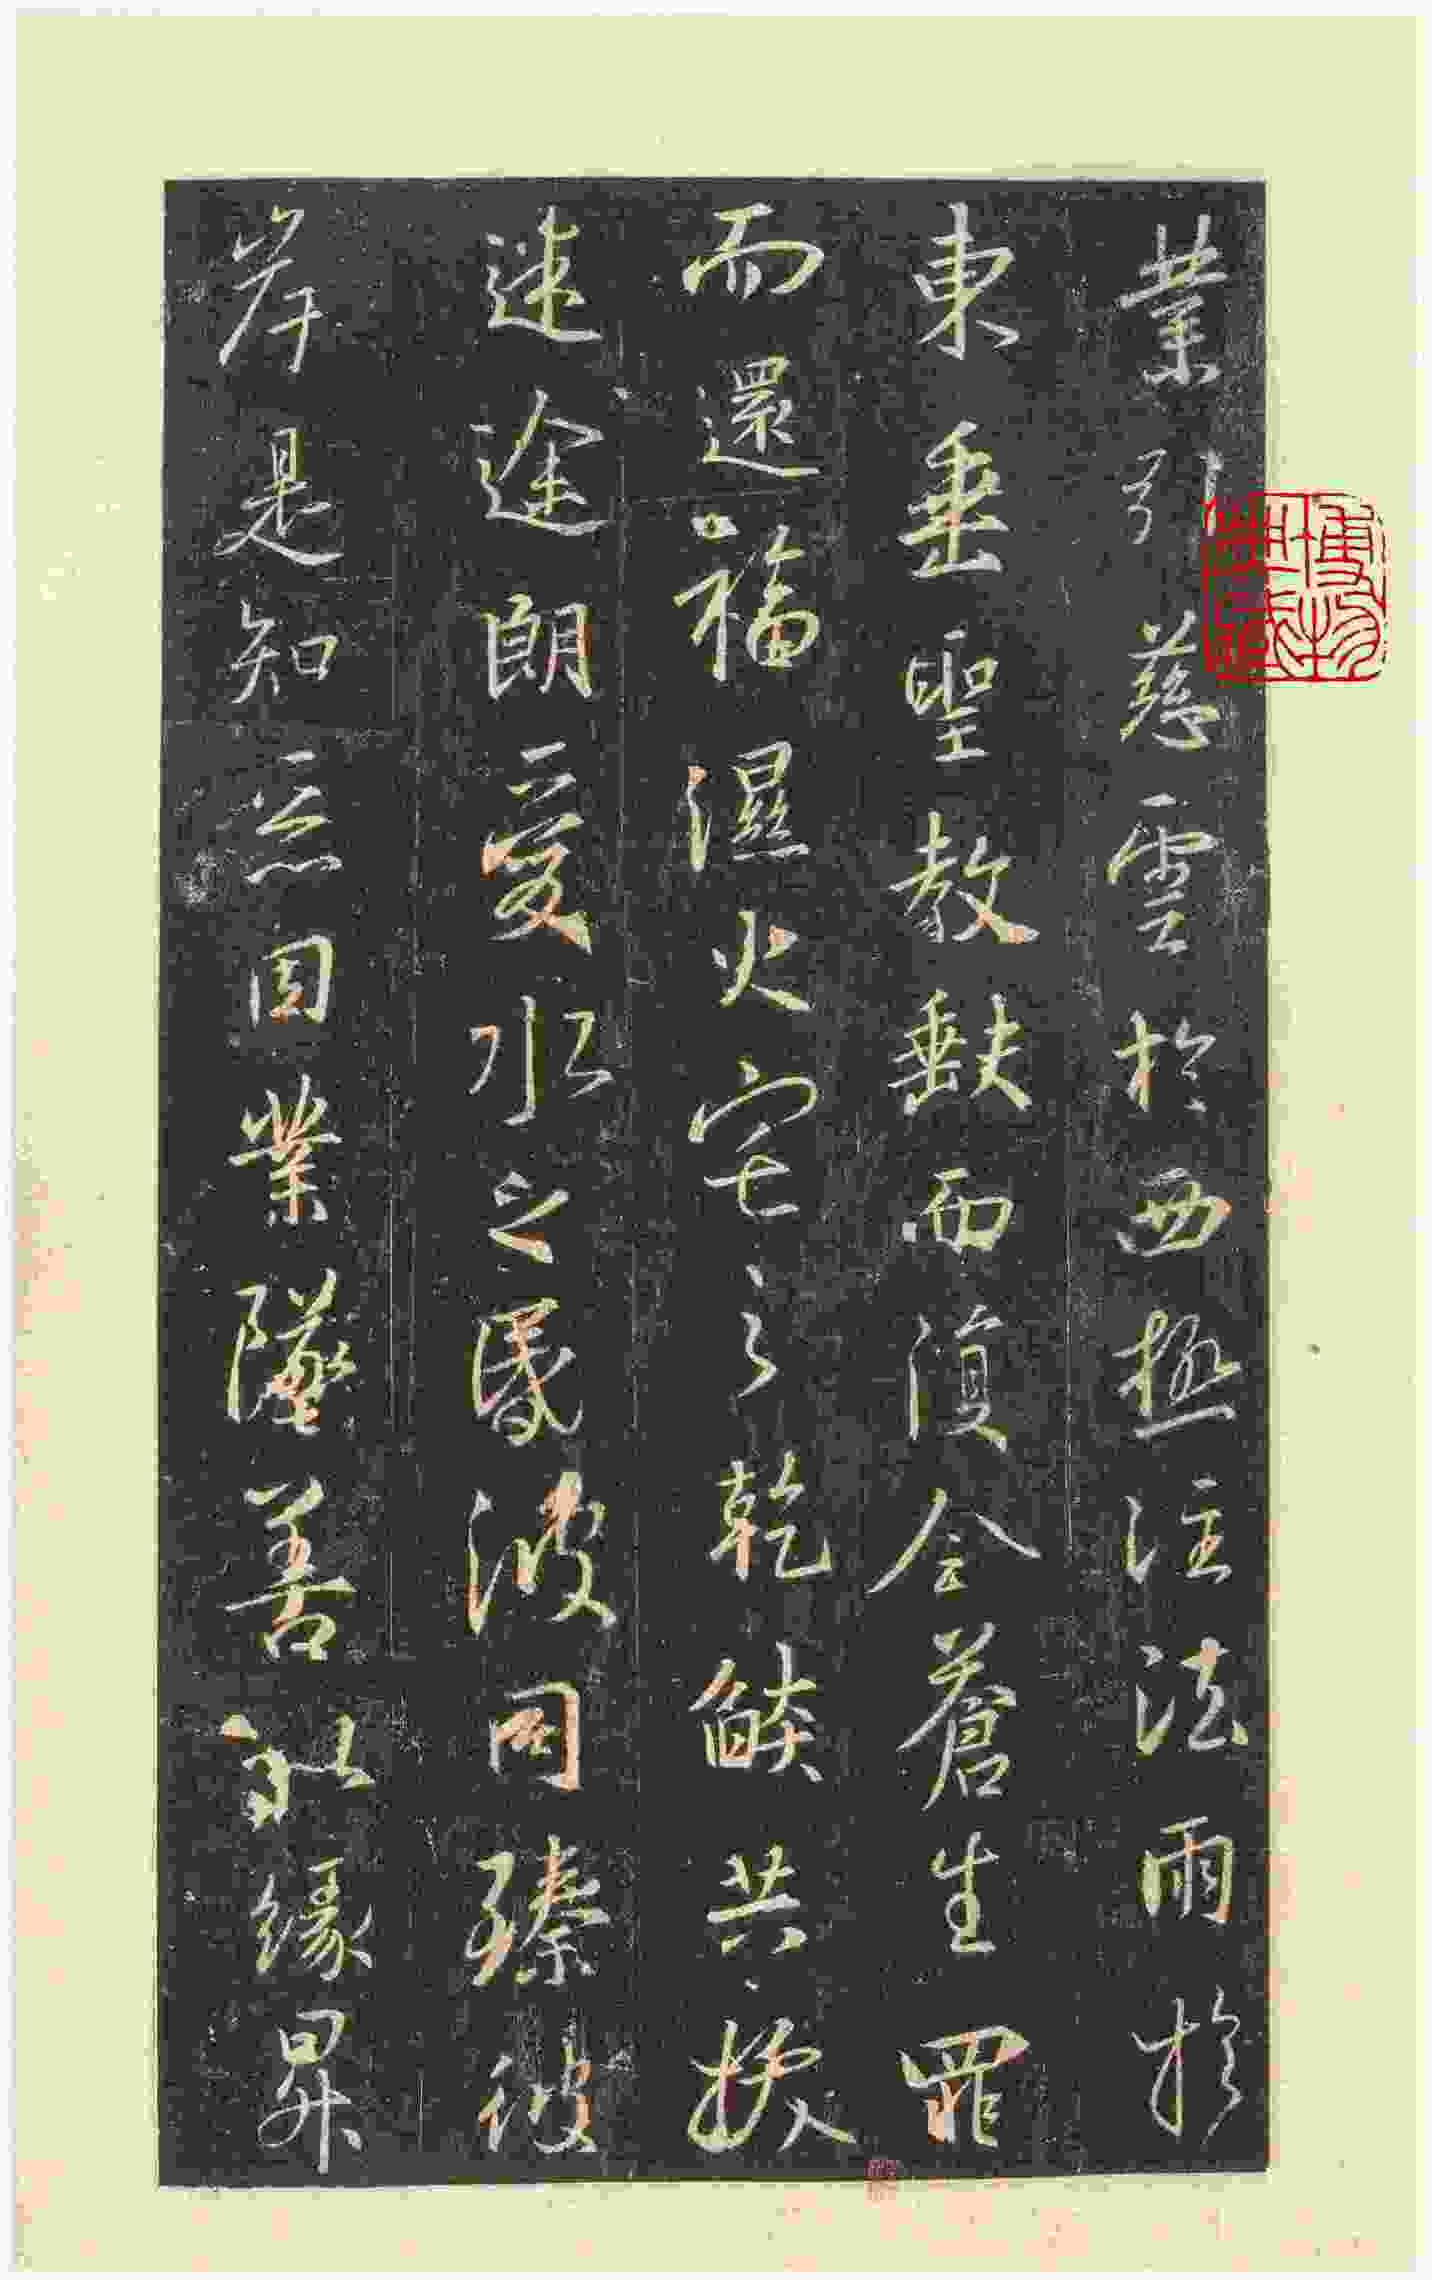 業引慈雲於西極注法雨於
東垂聖教缺而復全蒼生罪
而還福濕火宅之乾焰共拔
迷途朗愛水之昏波同臻彼
岸是知惡因業墜善以緣昇